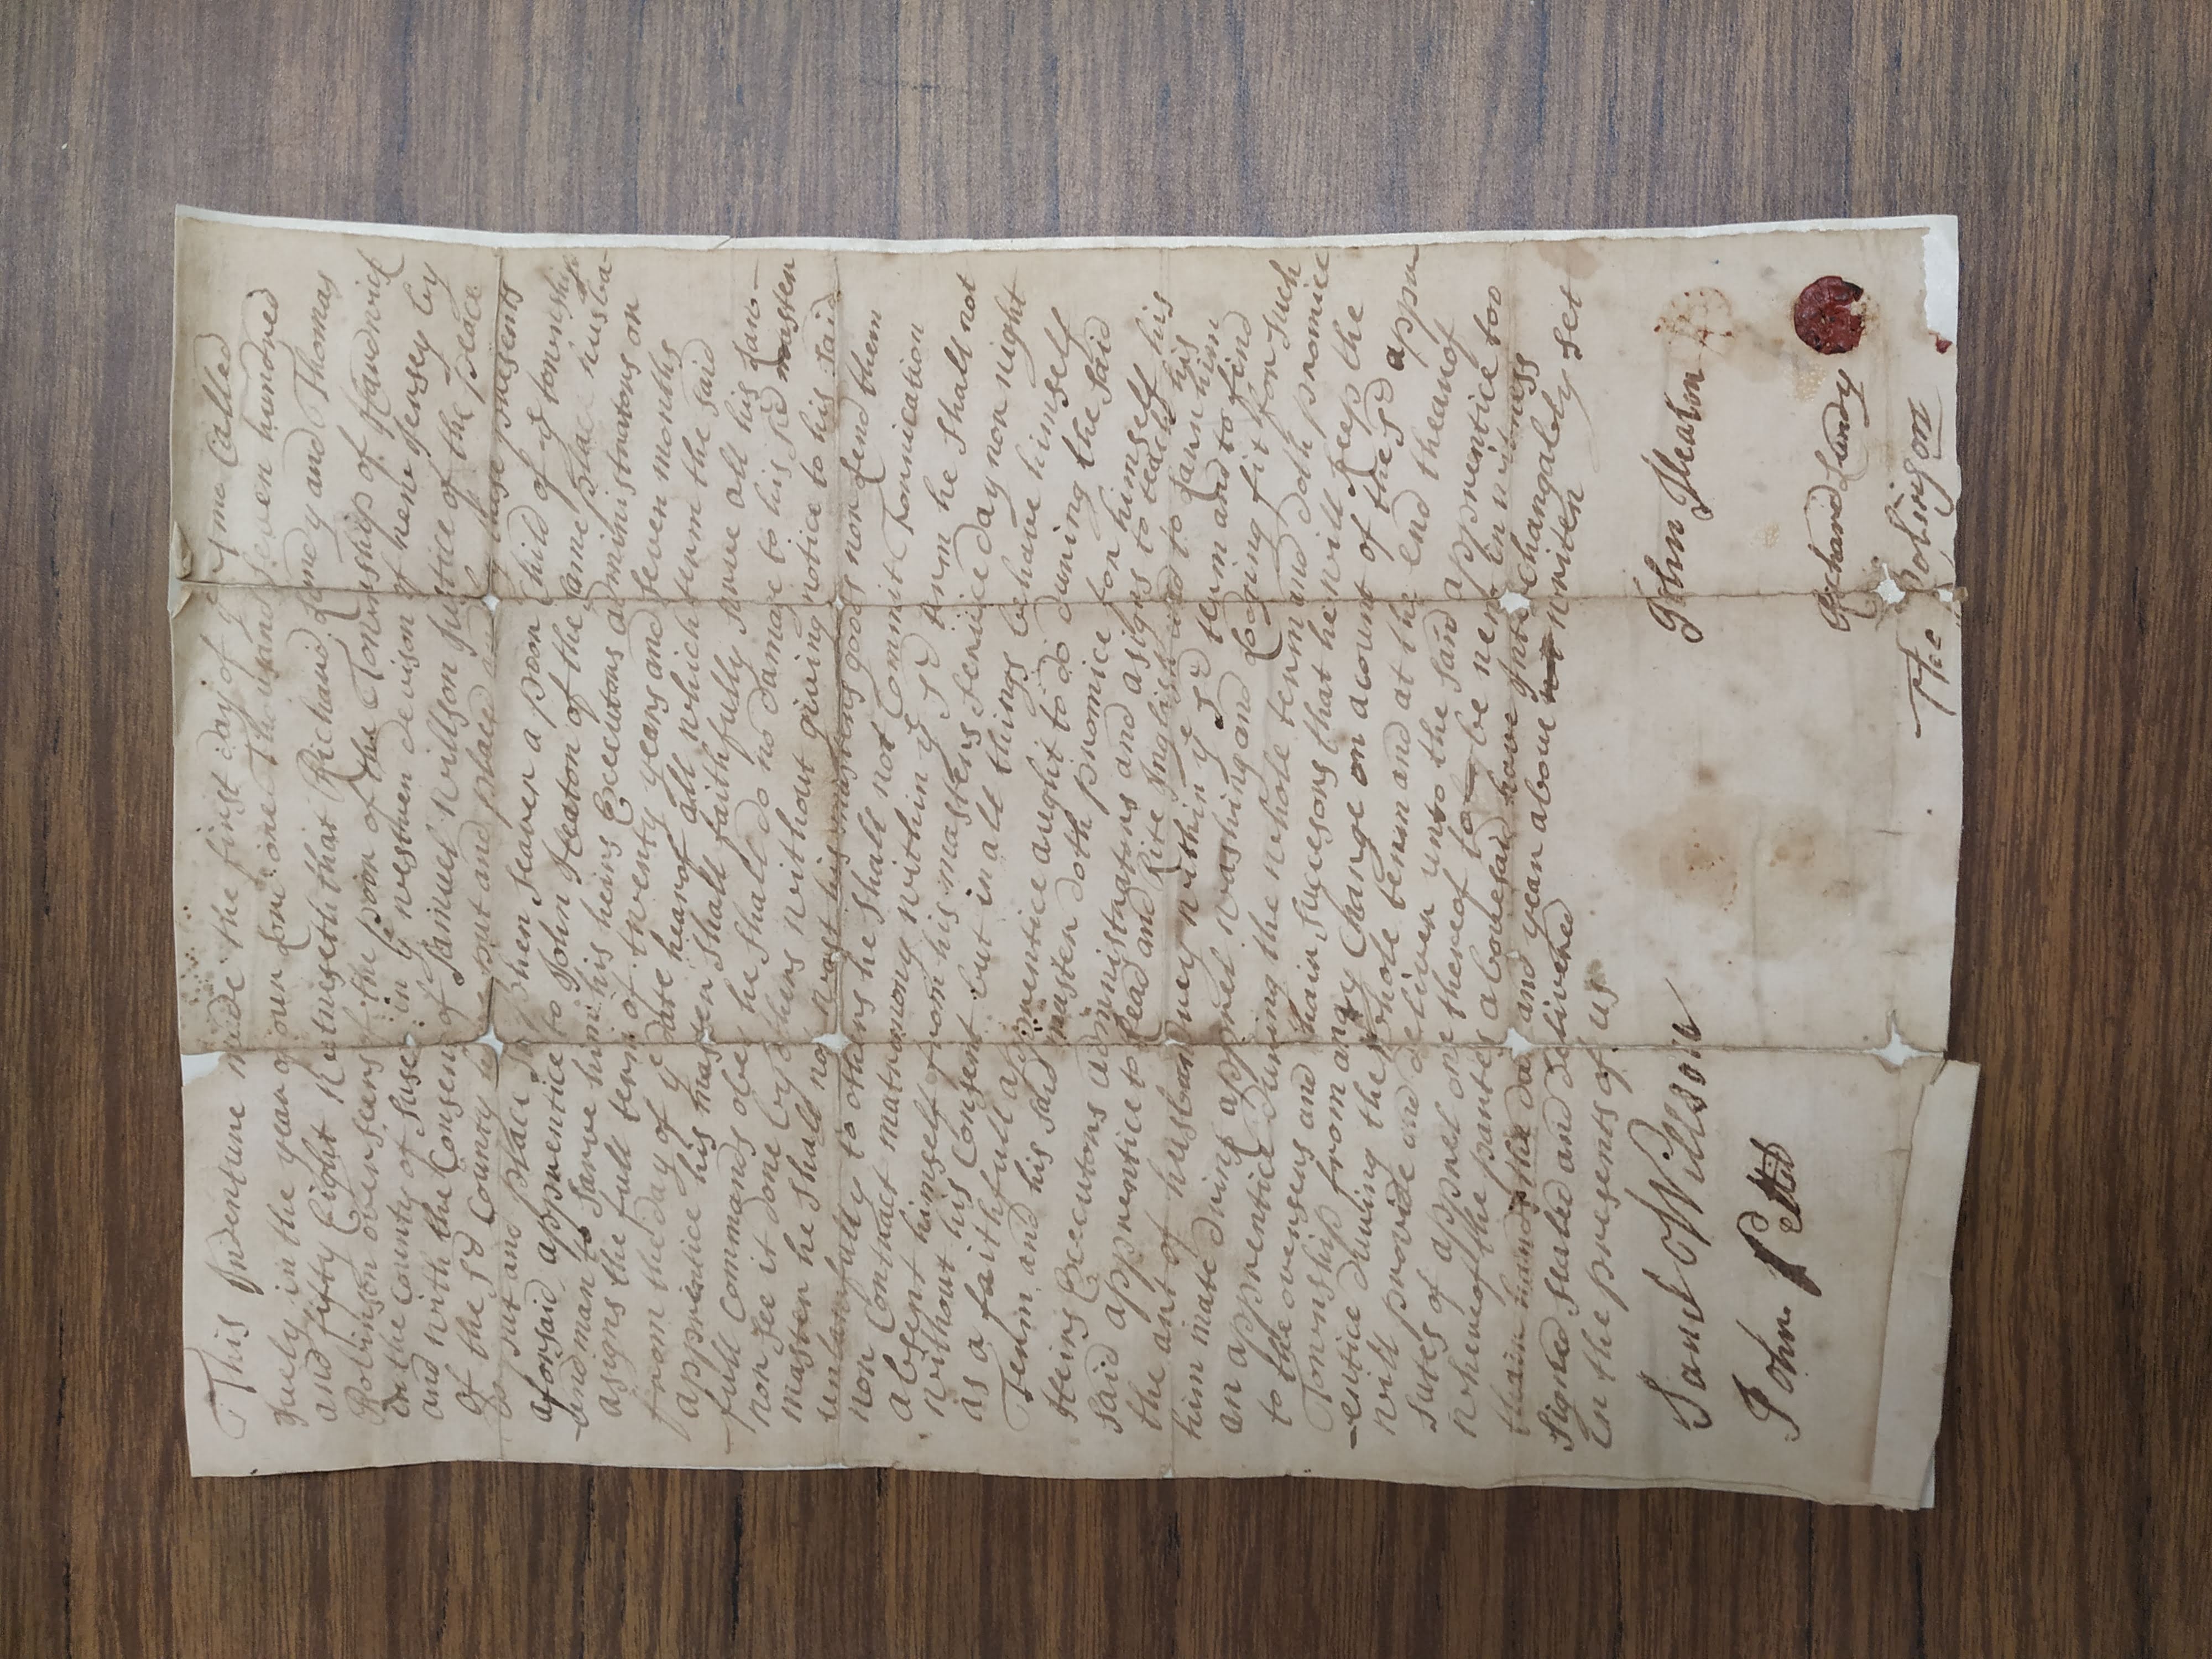 This Indenture made the first day of ye 7 mo Called
July in the year of our Lord one Thousand Seven hundred
and fifty Eight Witnesseth that Richard Lundy and Thomas
Robinson overseers of the poor of the Township of Hardwick
in the County of Susex in ye western devison of new Jersey by
and with the Consent of Samuel Willson Justice of the peace
of the sd County put and place and by these presents
do put and place Stephen Seaver a poor Child of ye township
aforsaid apprentice to John Heaton of the same place husba-
-ndman to Sarve him his heirs Executors administrators or
asigns the full term of twenty years and seven months
from the day of ye date hearof all which term the said
apprentice his master Shall faithfully Sarve all his Law-
-full Commands obey he Shall do no damage to his sd master
nor See it done by others without giving notice to his said
master he shall not wast his masters goods nor Lend them
unlawfully to others he shall not Commit Fornication
nor Contract matrimony within ye sd term he Shall not
absent himself from his masters Service day nor night
without his Consent but in all things behave himself
as a faithfull apprentice aught to do during the said
Term and his said master doth promice for himself his
Heirs Executors administrators and asigns to teach his
said apprentice to Read and Rite Inglish and to Larn him
the art of husbandrey within ye sd term and to find
him mate drink apparel washing and Lodging fit for Such
an apprentice During the whole term and doth promice
to the overseers and thair Sucesors that he will Keep the
Township from any Charge on acount of the sd appr
-entice During the whole term and at the end thearof
will provide and deliver unto the said apprentice too
sutes of apparel one thereof to be new in witness
whereof the parties abovesaid have Interchangably set
thair hands the day and year above writen
Signed sealed and delivered
In the presents of us
Saml Willson
John Heaton
John Pettit
Richard Lundy
Tho Robinson